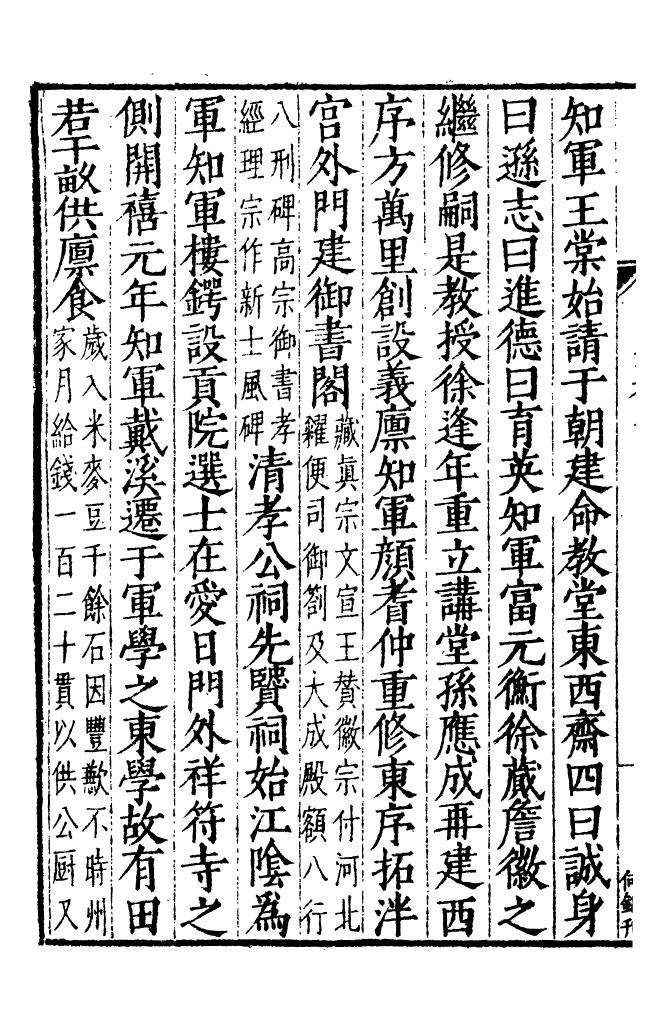 知軍王棠始請于朝建命教堂東西齋四曰誠身
曰遜志曰進德曰育英知軍富元衡徐蕆詹徽之
繼修嗣是教授徐逢年重立講堂孫應成再建西
序方萬里創設義廪知軍顔耆仲重修東序拓泮
宫外門建御書閣藏真宗文宣王贊徽宗付河北
糴便司御劄及大成殿額八行
八刑碑高宗御書孝
經理宗作新士風碑清孝公祠先賢祠始江隂爲
軍知軍樓鍔設貢院選士在愛日門外祥符寺之
側開禧元年知軍戴溪遷于軍學之東學故有田
若干畝供廪食歲入米麥豆千餘石因豐歉不時州
家月給錢一百二十貫以供公厨又